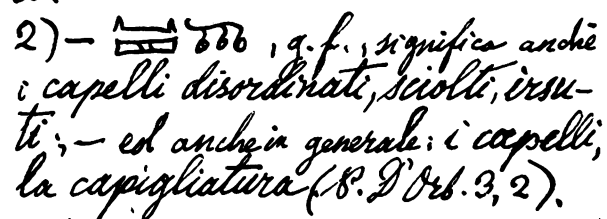 2) — , q. f., significa anche
i capelli disordinati, sciolti, irsu-
ti; — ed anche in generale: i capelli,
la capigliatura (P. D'Orb. 3, 2).